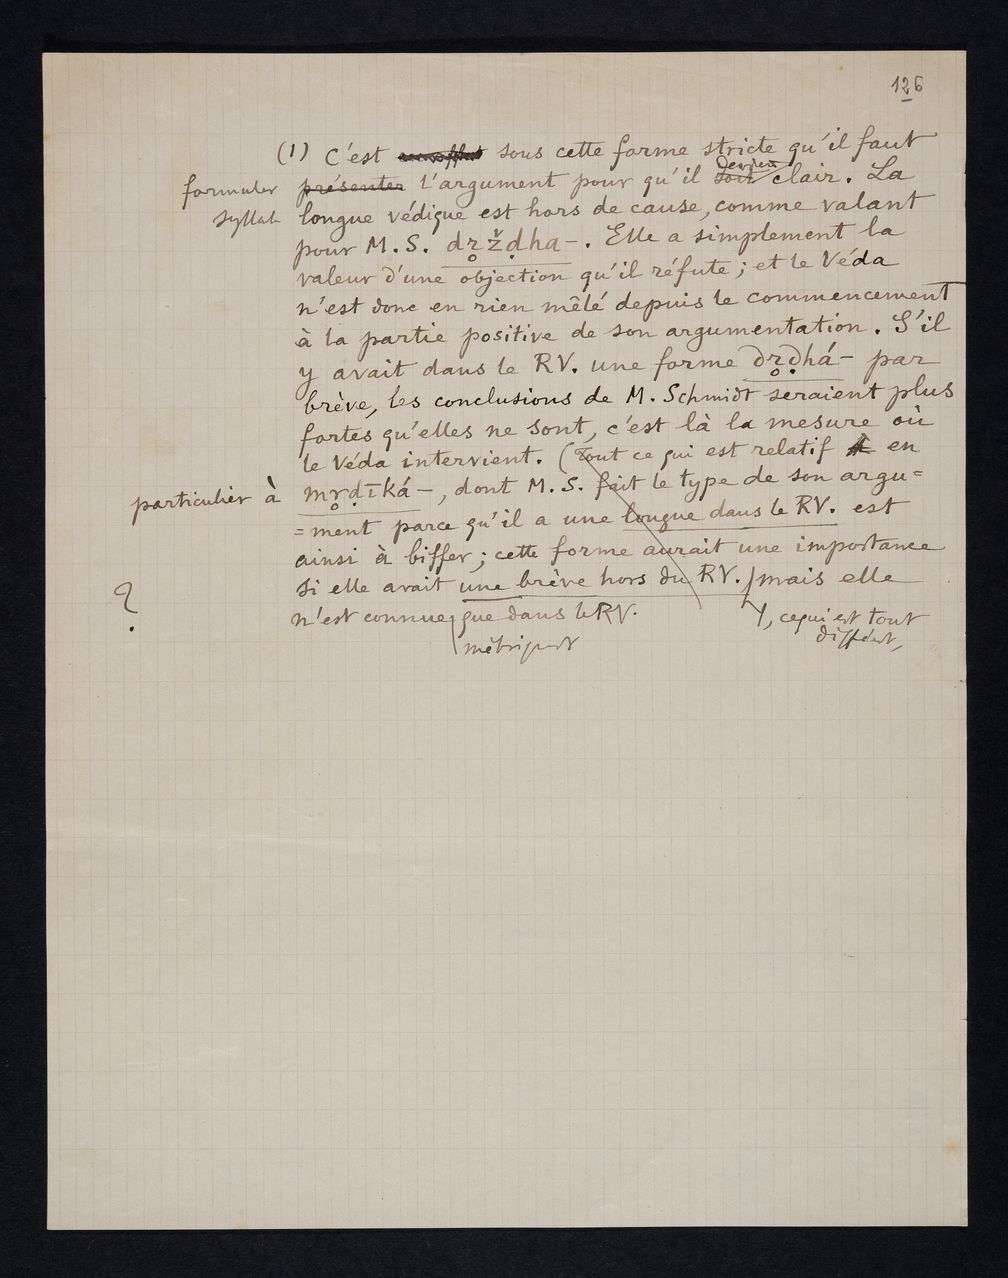 126
(1) C'est sous cette forme stricte qu'il faut
devien
formuler présenter l'argument pour qu'il soit clair. La
syllab longue védique est hors de cause, comme valant
pour M. S. dr̥ẓ̌ḍha-. Elle a simplement la
valeur d'une objection qu'il réfute ; et le Véda
n'est donc en rien mêlé depuis le commencement
à la partie positive de son argumentation. S'il
y avait dans le RV. une forme dr̥ḍhá- par
brève, les conclusions de M. Schmidt seraient plus
fortes qu'elles ne sont, c'est là la mesure où
le Véda intervient. (Tout ce qui est relatif en
particulier à mr̥ḍīká-, dont M. S. fait le type de son argu=
=ment parce qu'il a une longue dans le RV. est
ainsi à biffer ; cette forme aurait une importance
si elle avait une brève hors du RV. mais elle
?
n'est connue que dans le RV.
, ce qui est tout
différent,